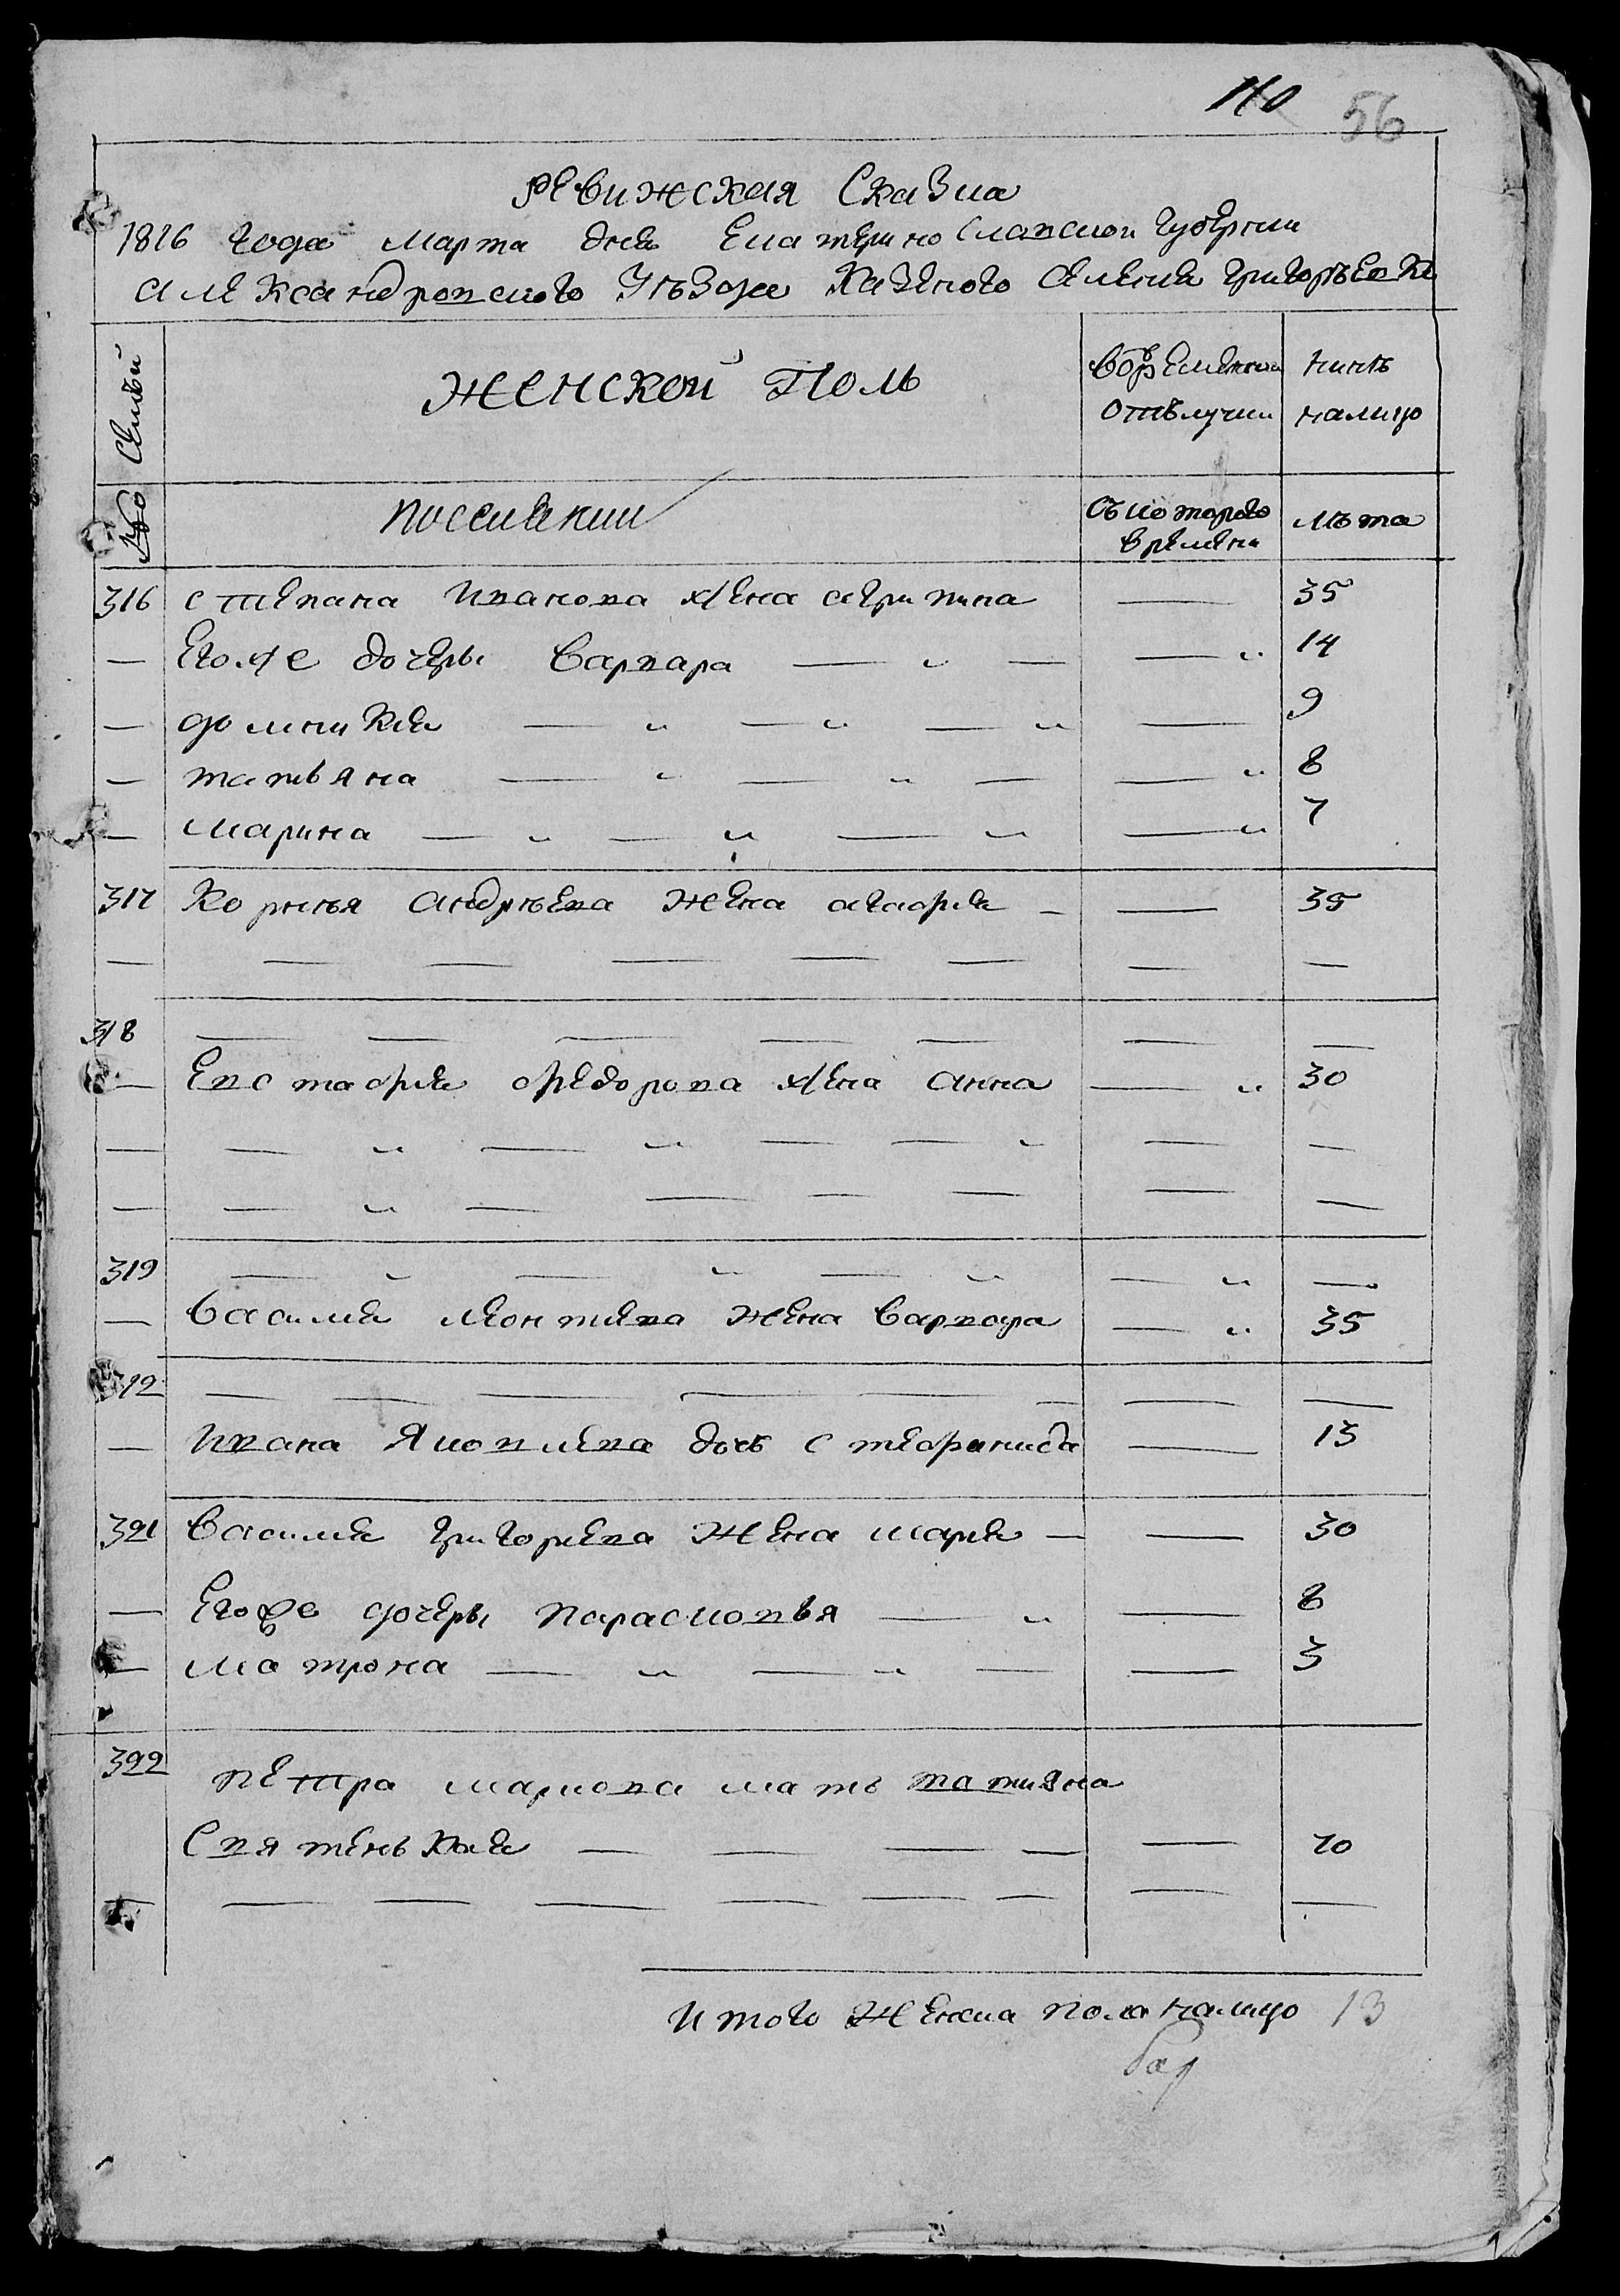 110 56
Ревижская Сказка
1816 года Марта дня Екатеринославской Губернии
Александровского Уезда Казеного Селения Григорьевки
Семьи
Женской Поль
Вовременной отълучки
Нинѣ налицо
№
Съкоторого времени
Лѣта
316 Степана Иванова жена агрипина — 35
— Егоже дочеры Варвара — 14
— домникия — 9
— татьяна — 8
— марина — 7
317 Корнѣя Андрѣева жена агафия — 35
318
— Евстафия Федорова жена анна — 30
319
— Василия леонтиева жена Варвара — 35
— Ивана Яковлева дочь стефанида — 13
321 Василия Григориева жена мария — 30
— Егоже дочеры парасковья — 8
— матрона — 3
322 петра маркова мать татияна
Святенькая — 70
Итого женска пола налицо 13